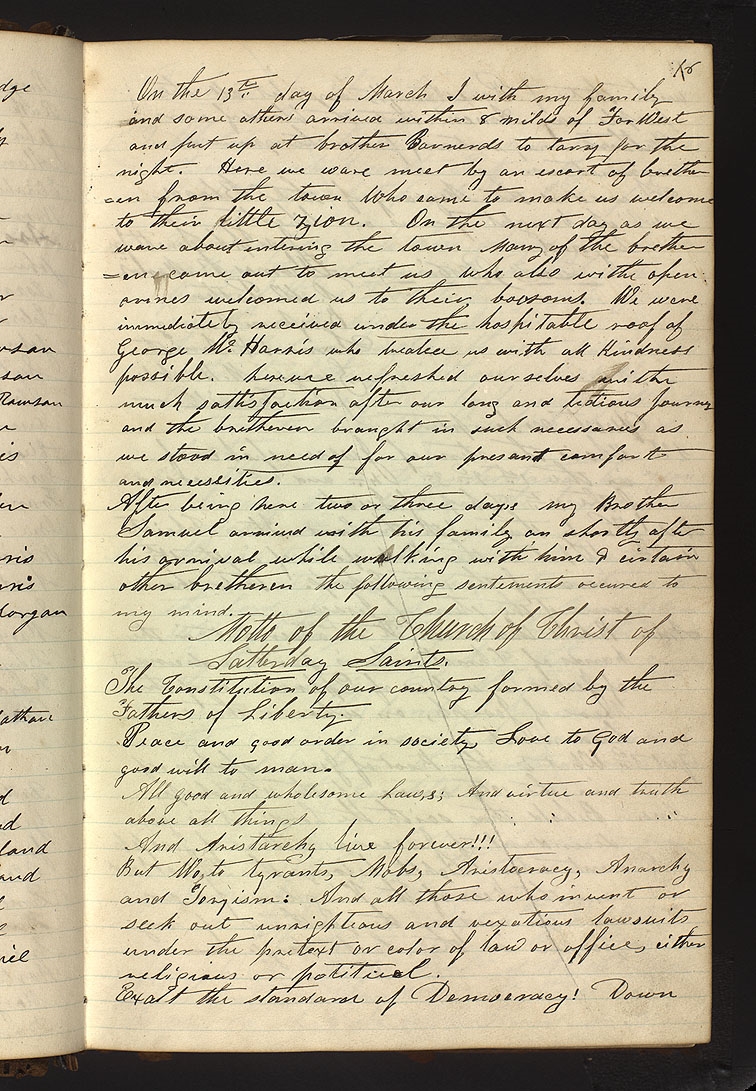 16
On the 13th day of March I with my family
and some others arrived within 8 milds of Far West
and put up at brother Barnerds to tarry for the
night. Here we ware meet by an escort of breth
=en from the town Who came to make us welcome
to their little Zion. On the next day as we
ware about entering the town Many of the breth
=en come out to meet us who also withe open
armes welcomed us to their boosoms. We were
immediately received under the hospitable roof of
George W. Harris who treated us with all kindness
possible. here we refreshed ourselves withe
much sattisfaction after our long and tedious Journey
and the bretheren braught in such necessaries as
we stood in need of for our present comfort
and necessities.
After being here two or three days my Brother
Samuel arrived with his family an shortly after
his arrival while walking with him & cirtain
other bretheren the following sentements occured to
my mind.
Motto of the Church of Christ of
Latterday Saints.
The Constitution of our country formed by the
Fathers of Liberty.
Peace and good order in society Love to God and
good will to man.
All good and wholesome Laws; And virtue and truth
above all things
And Aristarchy live forever!!!
But Wo, to tyrants, Mobs, Aristocracy, Anarchy
and Toryism: And all those who invent or
seek out unrightious and vexatious lawsuits
under the pretext or color of law or office, either
religious or political.
Exalt the standard of Democracy! Down
dge
wson
son
Rawson
is
ris
rris
organ
athan
d
nd
land
and
iel